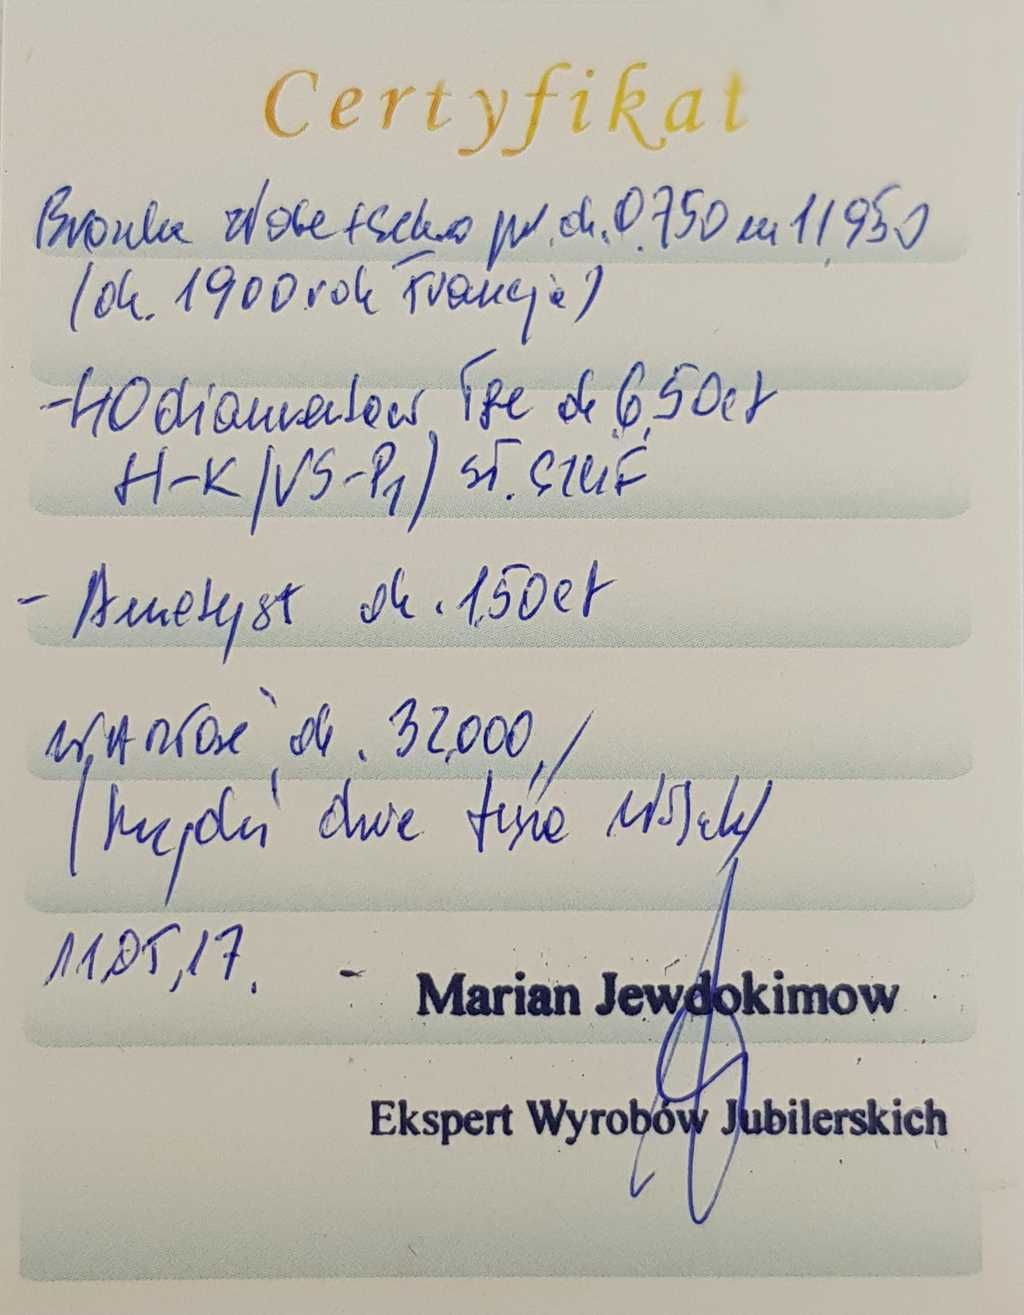 Certyfikat
Broszka złote + srebro pr. ok. 0,750 m 11,950
(ok. 1900 rok Francja)
- 40 diamentów Tge ok 6,50ct
H-K/VS-P1) st. szlif
- Ametyst ok. 1,50ct
Wartość ok. 32,000,/
(trzydzi dwie tysią
11.05,17. -
Marian Jewdokimow
Ekspert Wyrobów Jubilerskich